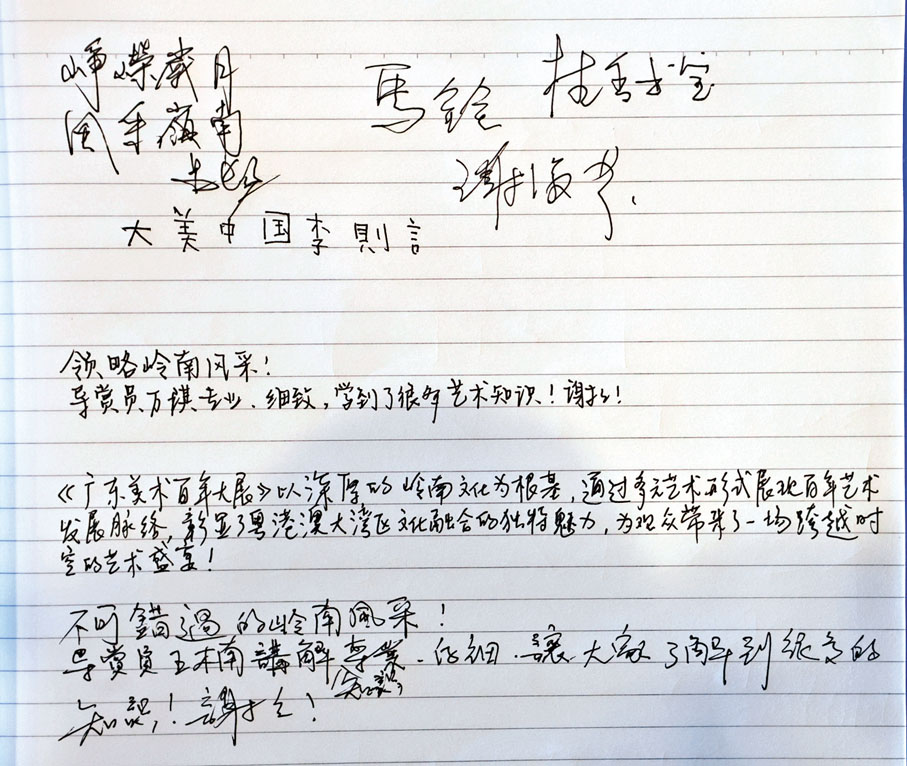 崢嶸歲月
風采嶺南
馬鈴
大美中国李則言
领略岭南风采！
导赏员万琪专业、细致，学到了很多艺术知识！谢谢！
《广东美术百年大展》以深厚的岭南文化为根基，通过多元艺术形式展现百年艺术
发展脉络，彰显了粤港澳大湾区文化融合的独特魅力，为观众带来了一场跨越时
空的艺术盛宴！
不可錯過的岭南風采！
导赏員王木南講解專業、仔細、讓大家了解到很多的
知識！謝謝！